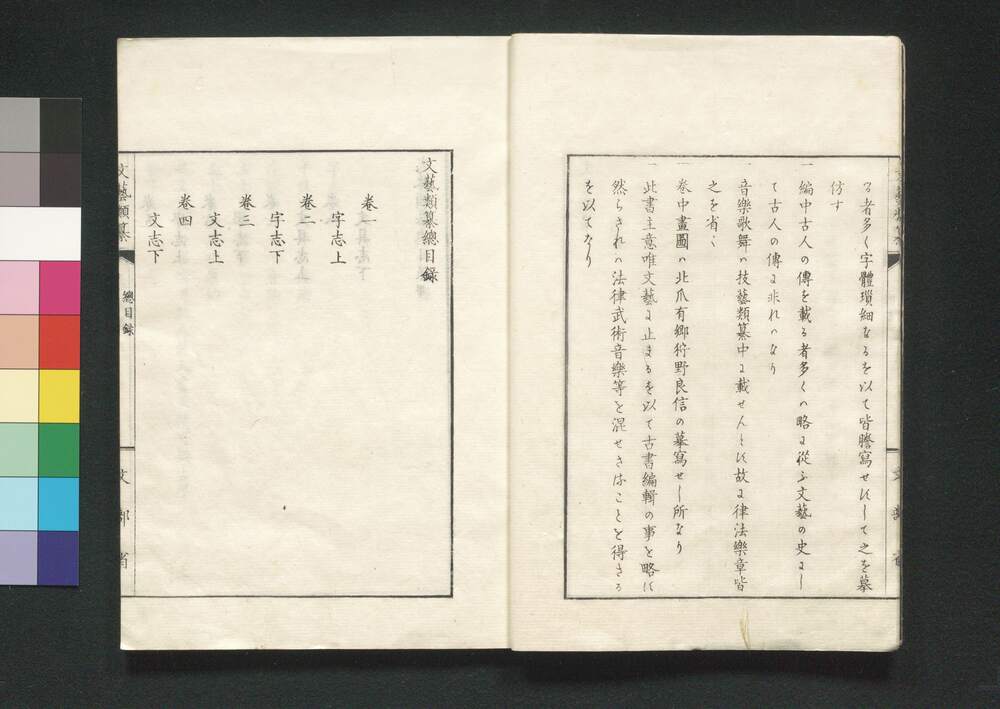 る者多く字體瑣細なるを以て皆謄寫せすして之を摹
仿す
一 編中古人の傳を載る者多くハ略に從ふ文藝の史にし
て古人の傳に非れハなり
一 音樂歌舞ハ技藝類纂中に載せんとす故に律法樂章皆
之を省く
一 卷中畫圖ハ北爪有郷狩野良信の摹寫せし所なり
一 此書主意唯文藝に止まるを以て古書編輯の事を略す
然らされハ法律武術音樂等を混せさることを得さる
を以てなり
文藝類纂總目録
卷一
字志上
卷二
字志下
卷三
文志上
卷四
文志下
文藝類纂
總目録
文部省